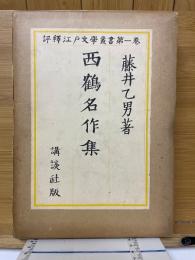 評釋江戸文學叢書第一卷
藤井乙男著
西鶴名作集
講談社版